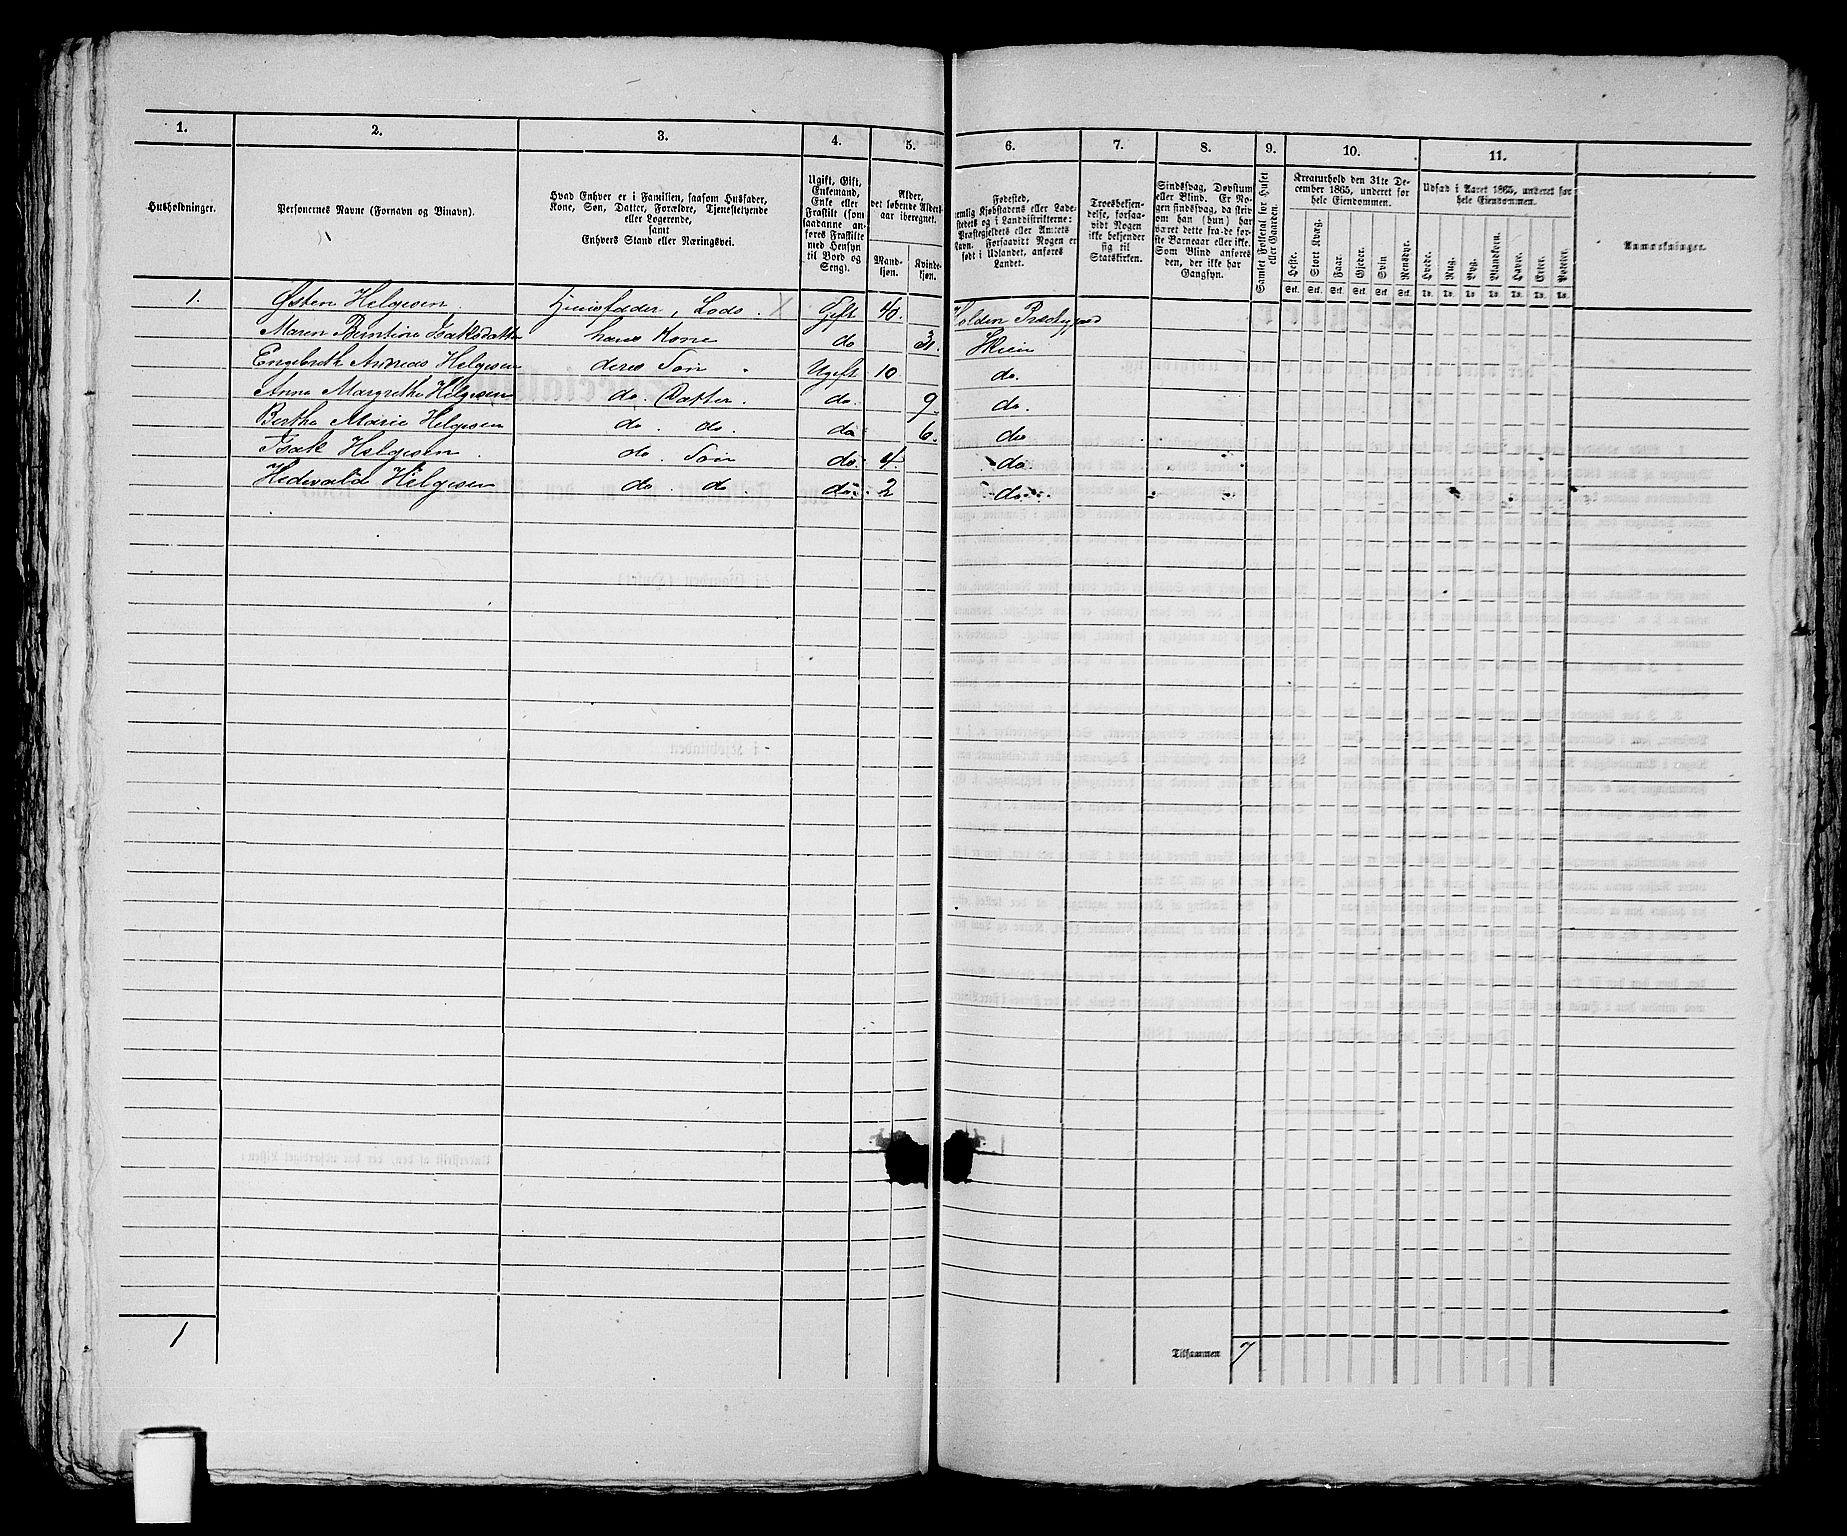 1. 2. 3. 4. 5. 6. 7. 8. 9. 10. 11.
Husholdninger.
Personernes Navne (Fornavn og Vinavn).
Hvad Enhver er i Familien, saasom Husfader,
Kone, Søn, Datter, Forældre, Tjenestetyende
eller Logerende,
samt
Enhvers Stand eller Næringsvei.
Ugift, Gift,
Enkemand,
Enke eller
Fraskilte (som
saadanne an-
føres Fraskilte
med Hensyn
til Bord og
Seng).
Alder,
det løbende Alders-
aar iberegnet.
Mand-
kjøn.
Kvinde-
kjøn.
Fødested,
nemlig Kjøbstadens eller Lade-
stedets og i Landdistrikterne:
Præstegjeldets eller Amtets
Navn. Forsaavidt Nogen er
født i Udlandet, anføres
Landet.
Troesbekjen-
delse, forsaa-
vidt Nogen
ikke bekjender
sig til
Statskirken.
Sindssvag, Døvstum
eller Blind. Er No-
gen sindssvag, da skriv
om han (hun) har
været dette fra de før-
ste Barneaar eller ikke.
Som Blind anføres
den, der ikke har
Gangsyn.
Samlet Folketal for Huset
eller Gaarden.
Kreaturhold den 31te De-
cember 1865, underet for
hele Eiendommen.
Heste. Stort Kvæg. Faar. Gjeder. Svin Rensdyr.
Stk. Stk. Stk. Stk. Stk. Stk.
Udsæd i Aaret 1865, underet for
hele Eiendommen.
Hvede. Rug. Byg. Blandkorn. Havre. Erter. Poteter.
Td. Td. Td. Td. Td. Td. Td.
Anmærkninger.
1. Østen Helgesen Huusfader, Lods. X Gift 40. Holden Præstegjeld
Maren Berntine Isaksdatter hans Kone do 31. Skien
Engebreth Andreas Helgesen deres Søn Ugift 10 do.
Anne Margrethe Helgesen do. Datter. do. 9. do.
Berthe Marie Helgesen do. do. do 6. do
Isak Helgesen do. Søn do. 4. do
Hedevald Helgesen do. do. do. 2 do.
1
Tilsammen 7